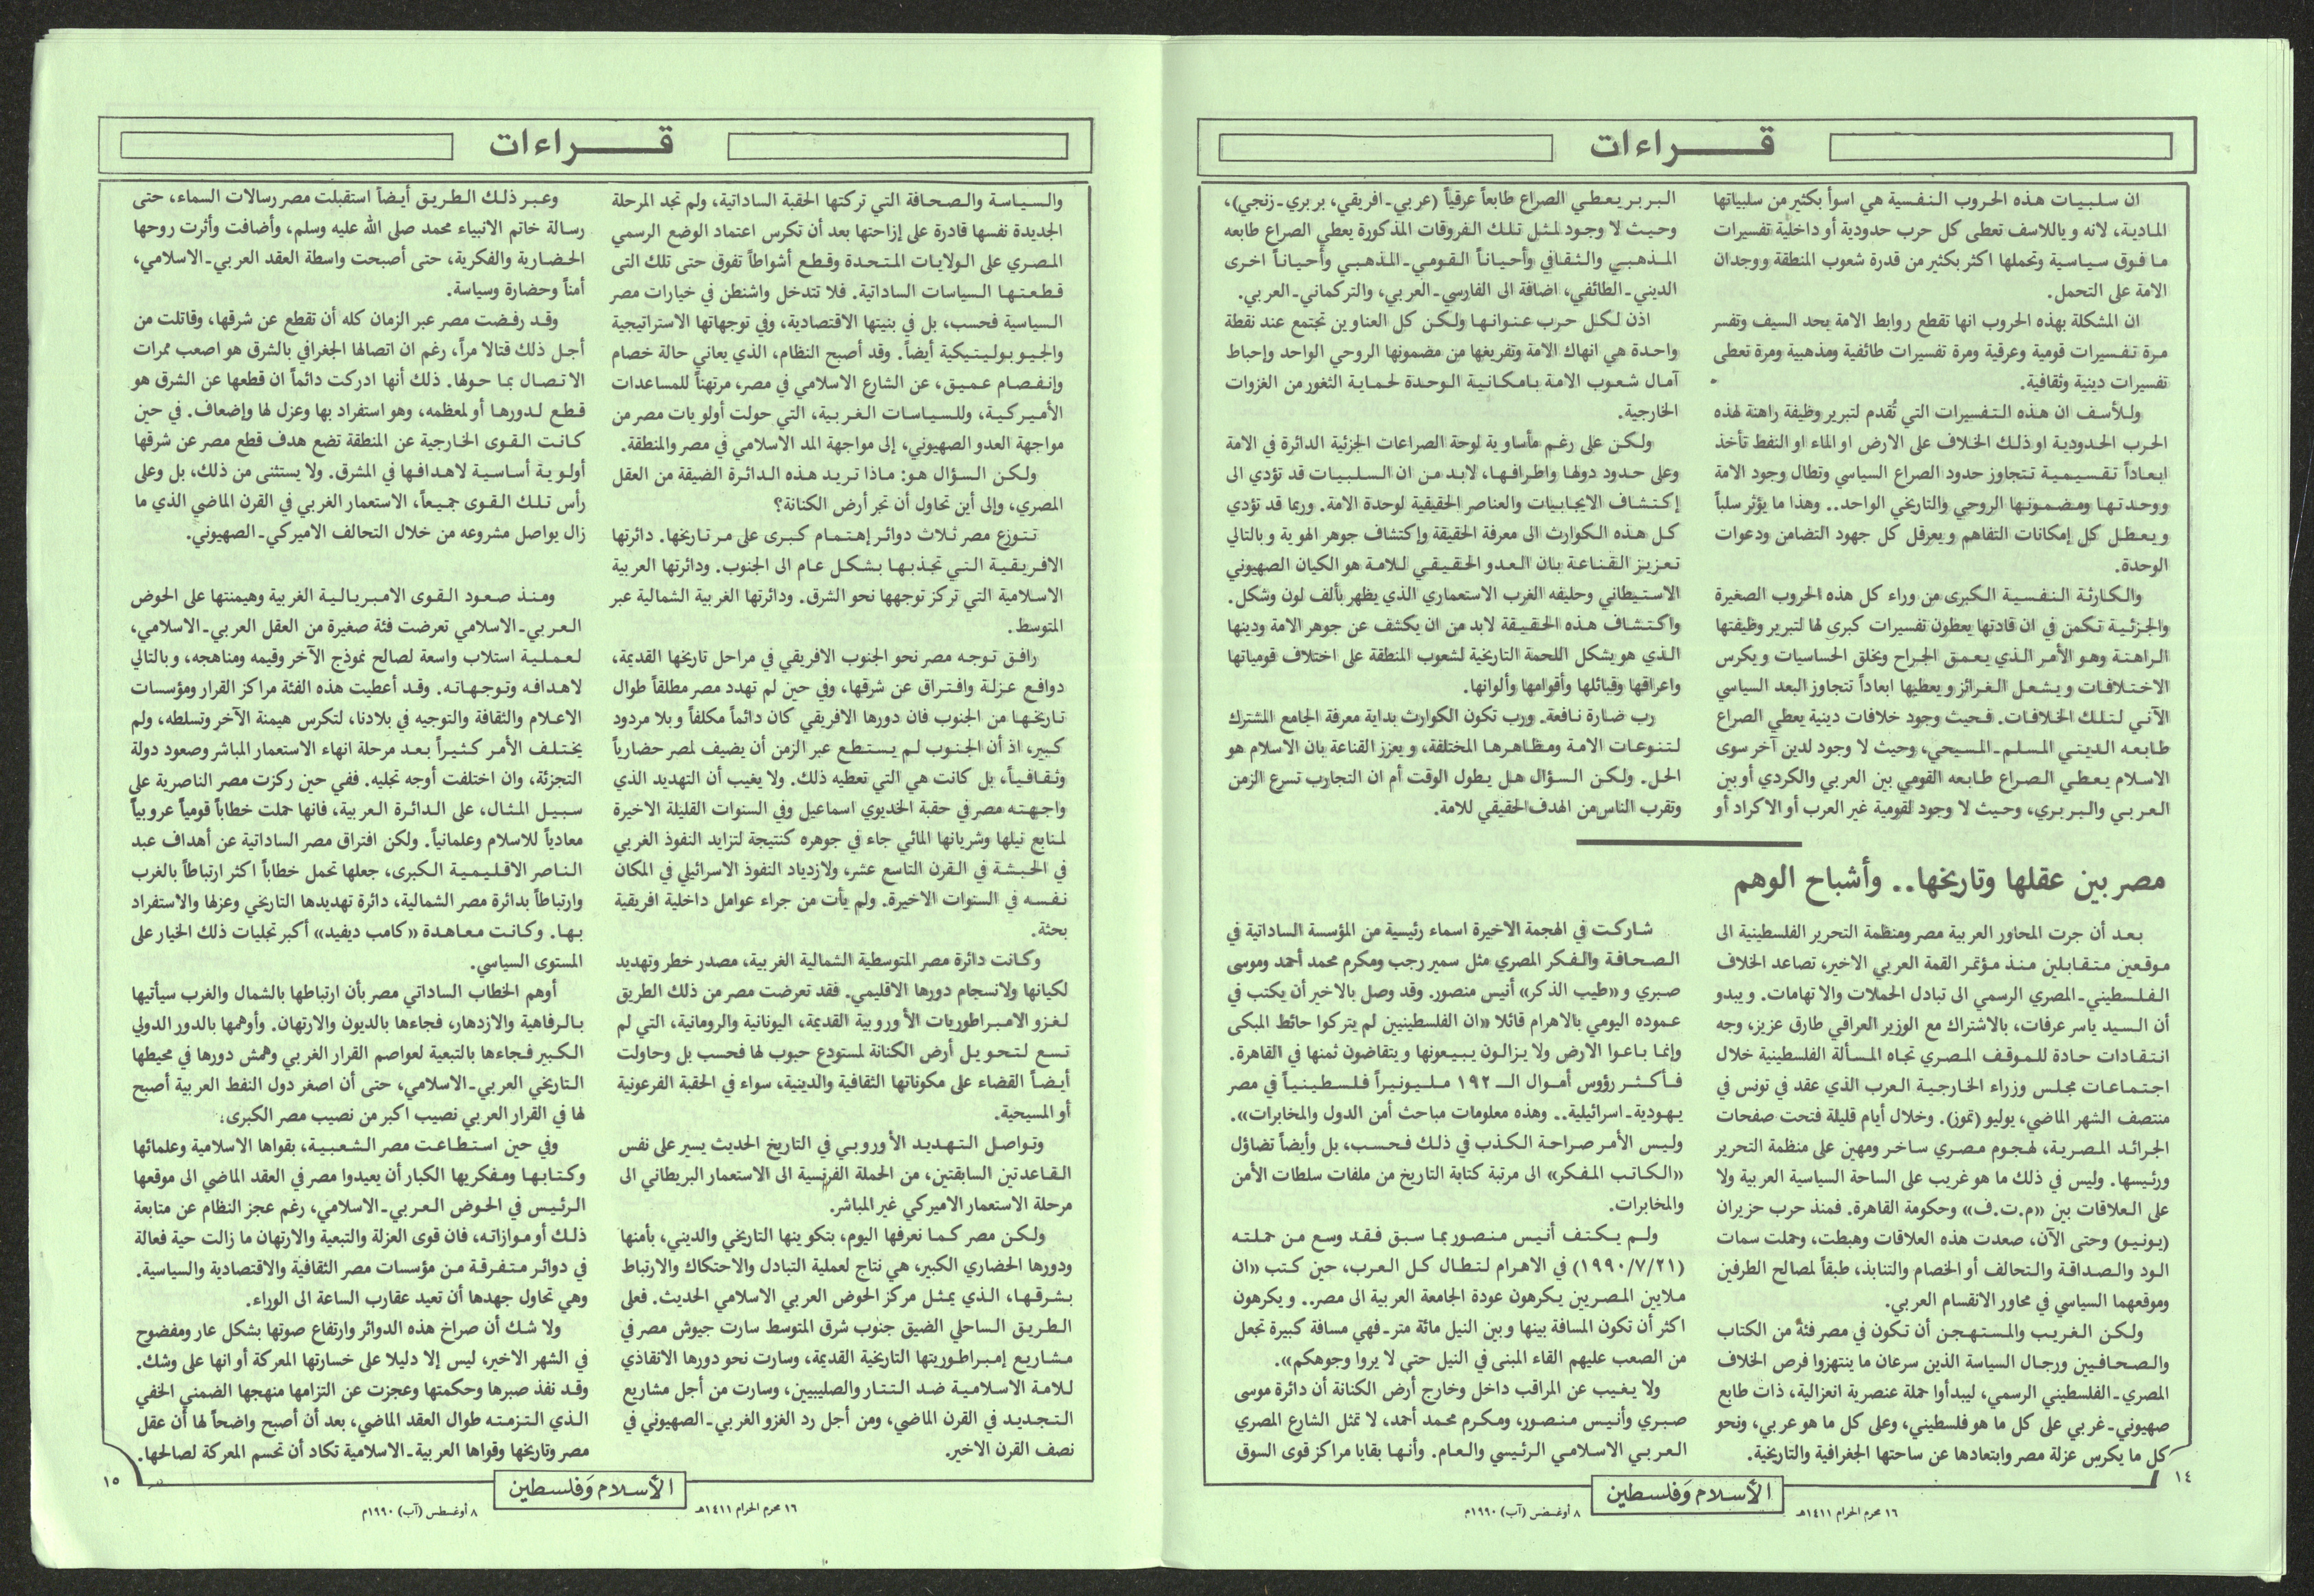 قـــراءات
ان سلبيات هذه الحروب النفسية هي اسوأ بكثير من سلبياتها
المادية، لانه وياللاسف تعطى كل حرب حدودية أو داخلية تفسيرات
ما فوق سياسية وتحملها اكثر بكثير من قدرة شعوب المنطقة ووجدان
الامة على التحمل.
ان المشكلة بهذه الحروب انها تقطع روابط الامة بحد السيف وتفسر
مرة تفسيرات قومية وعرقية ومرة تفسيرات طائفية ومذهبية ومرة تعطى
تفسيرات دينية وثقافية.
وللأسف ان هذه التفسيرات التي تُقدم لتبرير وظيفة راهنة لهذه
الحرب الحدودية او ذلك الخلاف على الارض او الماء او النفط تأخذ
ابعاداً تقسيمية تتجاوز حدود الصراع السياسي وتطال وجود الامة
ووحدتها ومضمونها الروحي والتاريخي الواحد.. وهذا ما يؤثر سلباً
ويعطل كل إمكانات التفاهم ويعرقل كل جهود التضامن ودعوات
الوحدة.
والكارثة النفسية الكبرى من وراء كل هذه الحروب الصغيرة
والجزئية تكمن في ان قادتها يعطون تفسيرات كبرى لها لتبرير وظيفتها
الراهنة وهو الأمر الذي يعمق الجراح ويخلق الحساسيات ويكرس
الاختلافات ويشعل الغرائز ويعطيها ابعاداً تتجاوز البعد السياسي
الآني لتلك الخلافات. فحيث وجود خلافات دينية يعطي الصراع
طابعه الديني المسلم ـ المسيحي، وحيث لا وجود لدين آخر سوى
الاسلام يعطي الصراع طابعه القومي بين العربي والكردي أو بين
العربي والبربري، وحيث لا وجود لقومية غير العرب أو الاكراد أو
البربر يعطي الصراع طابعاً عرقياً (عربي ـ افريقي، بربري ـ زنجي)،
وحيث لا وجود لمثل تلك الفروقات المذكورة يعطي الصراع طابعه
المذهبي والثقافي وأحياناً القومي ـ المذهبي وأحياناً اخرى
الديني ـ الطائفي، اضافة الى الفارسي ـ العربي، والتركماني ـ العربي.
اذن لكل حرب عنوانها ولكن كل العناوين تجتمع عند نقطة
واحدة هي انهاك الامة وتفريغها من مضمونها الروحي الواحد وإحباط
آمال شعوب الامة بامكانية الوحدة لحماية الثغور من الغزوات
الخارجية.
ولكن على رغم مأساوية لوحة الصراعات الجزئية الدائرة في الامة
وعلى حدود دولها واطرافها، لابد من ان السلبيات قد تؤدي الى
إكتشاف الايجابيات والعناصر الحقيقية لوحدة الامة. وربما قد تؤدي
كل هذه الكوارث الى معرفة الحقيقة وإكتشاف جوهر الهوية وبالتالي
تعزيز القناعة بان العدو الحقيقي للامة هو الكيان الصهيوني
الاستيطاني وحليفه الغرب الاستعماري الذي يظهر بألف لون وشكل.
واكتشاف هذه الحقيقة لابد من ان يكشف عن جوهر الامة ودينها
الذي هو يشكل اللحمة التاريخية لشعوب المنطقة على اختلاف قومياتها
واعراقها وقبائلها وأقوامها وألوانها.
رب ضارة نافعة. ورب تكون الكوارث بداية معرفة الجامع المشترك
لتنوعات الامة ومظاهرها المختلفة، ويعزز القناعة بان الاسلام هو
الحل. ولكن السؤال هل يطول الوقت أم ان التجارب تسرع الزمن
وتقرب الناس من الهدف الحقيقي للامة.
مصر بين عقلها وتاريخها.. وأشباح الوهم
بعد أن جرت المحاور العربية مصر ومنظمة التحرير الفلسطينية الى
موقعين متقابلين منذ مؤتمر القمة العربي الاخير، تصاعد الخلاف
الفلسطيني ـ المصري الرسمي الى تبادل الحملات والاتهامات. ويبدو
أن السيد ياسر عرفات، بالاشتراك مع الوزير العراقي طارق عزيز، وجه
انتقادات حادة للموقف المصري تجاه المسألة الفلسطينية خلال
اجتماعات مجلس وزراء الخارجية العرب الذي عقد في تونس في
منتصف الشهر الماضي، يوليو (تموز). وخلال أيام قليلة فتحت صفحات
الجرائد المصرية، لهجوم مصري ساخر ومهين على منظمة التحرير
ورئيسها. وليس في ذلك ما هو غريب على الساحة السياسية العربية ولا
على العلاقات بين «م.ت.ف» وحكومة القاهرة. فمنذ حرب حزيران
(يونيو) وحتى الآن، صعدت هذه العلاقات وهبطت، وحملت سمات
الود والصداقة والتحالف أو الخصام والتنابذ، طبقاً لمصالح الطرفين
وموقعهما السياسي في محاور الانقسام العربي.
ولكن الغريب والمستهجن أن تكون في مصر فئة من الكتاب
والصحافيين ورجال السياسة الذين سرعان ما ينتهزوا فرص الخلاف
المصري ـ الفلسطيني الرسمي، ليبدأوا حملة عنصرية انعزالية، ذات طابع
صهيوني ـ غربي على كل ما هو فلسطيني، وعلى كل ما هو عربي، ونحو
كل ما يكرس عزلة مصر وابتعادها عن ساحتها الجغرافية والتاريخية.
شاركت في الهجمة الاخيرة اسماء رئيسية من المؤسسة الساداتية في
الصحافة والفكر المصري مثل سمير رجب ومكرم محمد أحمد وموسى
صبري و«طيب الذكر» أنيس منصور. وقد وصل بالاخير أن يكتب في
عموده اليومي بالاهرام قائلا «ان الفلسطينيين لم يتركوا حائط المبكى
وإنما باعوا الارض ولا يزالون يبيعونها ويتقاضون ثمنها في القاهرة.
فأكثر رؤوس أموال الـ ١٩٢ مليونيراً فلسطينياً في مصر
يهودية ـ اسرائيلية.. وهذه معلومات مباحث أمن الدول والمخابرات».
وليس الأمر صراحة الكذب في ذلك فحسب، بل وأيضاً تضاؤل
«الكاتب المفكر» الى مرتبة كتابة التاريخ من ملفات سلطات الأمن
والمخابرات.
ولم يكتف أنيس منصور بما سبق فقد وسع من حملته
(١٩٩٠/٧/٢١) في الاهرام لتطال كل العرب، حين كتب «ان
ملايين المصريين يكرهون عودة الجامعة العربية الى مصر.. ويكرهون
اكثر أن تكون المسافة بينها وبين النيل مائة متر ـ فهي مسافة كبيرة تجعل
من الصعب عليهم القاء المبنى في النيل حتى لا يروا وجوهكم».
ولا يغيب عن المراقب داخل وخارج أرض الكنانة أن دائرة موسى
صبري وأنيس منصور، ومكرم محمد أحمد، لا تمثل الشارع المصري
العربي الاسلامي الرئيسي والعام. وأنها بقايا مراكز قوى السوق
١٤
الأسلام وَفلسطين
١٦ محرم الحرام ١٤١١هـ
٨ أوغسطس (آب) ١٩٩٠م
قـــراءات
والسياسة والصحافة التي تركتها الحقبة الساداتية، ولم تجد المرحلة
الجديدة نفسها قادرة على إزاحتها بعد أن تكرس اعتماد الوضع الرسمي
المصري على الولايات المتحدة وقطع أشواطاً تفوق حتى تلك التى
قطعتها السياسات الساداتية. فلا تتدخل واشنطن في خيارات مصر
السياسية فحسب، بل في بنيتها الاقتصادية، وفي توجهاتها الاستراتيجية
والجيوبوليتيكية أيضاً. وقد أصبح النظام، الذي يعاني حالة خصام
وإنفصام عميق، عن الشارع الاسلامي في مصر، مرتهناً للمساعدات
الأميركية، وللسياسات الغربية، التي حولت أولويات مصر من
مواجهة العدو الصهيوني، إلى مواجهة المد الاسلامي في مصر والمنطقة.
ولكن السؤال هو: ماذا تريد هذه الدائرة الضيقة من العقل
المصري، وإلى أين تحاول أن تجر أرض الكنانة؟
تتوزع مصر ثلاث دوائر إهتمام كبرى على مر تاريخها. دائرتها
الافريقية التي تجذبها بشكل عام الى الجنوب. ودائرتها العربية
الاسلامية التي تركز توجهها نحو الشرق. ودائرتها الغربية الشمالية عبر
المتوسط.
رافق توجه مصر نحو الجنوب الافريقي في مراحل تاريخها القديمة،
دوافع عزلة وافتراق عن شرقها، وفي حين لم تهدد مصر مطلقاً طوال
تاريخها من الجنوب فان دورها الافريقي كان دائماً مكلفاً وبلا مردود
كبير، اذ أن الجنوب لم يستطع عبر الزمن أن يضيف لمصر حضارياً
وثقافياً، بل كانت هي التي تعطيه ذلك. ولا يغيب أن التهديد الذي
واجهته مصر في حقبة الخديوي اسماعيل وفي السنوات القليلة الاخيرة
لمنابع نيلها وشريانها المائي جاء في جوهره كنتيجة لتزايد النفوذ الغربي
في الحبشة في القرن التاسع عشر، ولازدياد النفوذ الاسرائيلي في المكان
نفسه في السنوات الاخيرة. ولم يأت من جراء عوامل داخلية افريقية
بحثة.
وكانت دائرة مصر المتوسطية الشمالية الغربية، مصدر خطر وتهديد
لكيانها ولانسجام دورها الاقليمي. فقد تعرضت مصر من ذلك الطريق
لغزو الامبراطوريات الأوروبية القديمة، اليونانية والرومانية، التي لم
تسع لتحويل أرض الكنانة لمستودع حبوب لها فحسب بل وحاولت
أيضاً القضاء على مكوناتها الثقافية والدينية، سواء في الحقبة الفرعونية
أو المسيحية.
وتواصل التهديد الأوروبي في التاريخ الحديث يسير على نفس
القاعدتين السابقتين، من الحملة الفرنسية الى الاستعمار البريطاني الى
مرحلة الاستعمار الاميركي غير المباشر.
ولكن مصر كما نعرفها اليوم، بتكوينها التاريخي والديني، بأمنها
ودورها الحضاري الكبير، هي نتاج لعملية التبادل والاحتكاك والارتباط
بشرقها، الذي يمثل مركز الحوض العربي الاسلامي الحديث. فعلى
الطريق الساحلي الضيق جنوب شرق المتوسط سارت جيوش مصر في
مشاريع إمبراطوريتها التاريخية القديمة، وسارت نحو دورها الانقاذي
للامة الاسلامية ضد التتار والصليبيين، وسارت من أجل مشاريع
التجديد في القرن الماضي، ومن أجل رد الغزو الغربي ـ الصهيوني في
نصف القرن الاخير.
وعبر ذلك الطريق أيضاً استقبلت مصر رسالات السماء، حتى
رسالة خاتم الانبياء محمد صلى الله عليه وسلم، وأضافت وأثرت روحها
الحضارية والفكرية، حتى أصبحت واسطة العقد العربي ـ الاسلامي،
أمناً وحضارة وسياسة.
وقد رفضت مصر عبر الزمان كله أن تقطع عن شرقها، وقاتلت من
أجل ذلك قتالا مراً، رغم ان اتصالها الجغرافي بالشرق هو اصعب ممرات
الاتصال بما حولها. ذلك أنها ادركت دائماً ان قطعها عن الشرق هو
قطع لدورها أو لمعظمه، وهو استفراد بها وعزل لها وإضعاف. في حين
كانت القوى الخارجية عن المنطقة تضع هدف قطع مصر عن شرقها
أولوية أساسية لاهدافها في المشرق. ولا يستثنى من ذلك، بل وعلى
رأس تلك القوى جميعاً، الاستعمار الغربي في القرن الماضي الذي ما
زال يواصل مشروعه من خلال التحالف الاميركي ـ الصهيوني.
ومنذ صعود القوى الامبريالية الغربية وهيمنتها على الحوض
العربي ـ الاسلامي تعرضت فئة صغيرة من العقل العربي ـ الاسلامي،
لعملية استلاب واسعة لصالح نموذج الآخر وقيمه ومناهجه، وبالتالي
لاهدافه وتوجهاته. وقد أعطيت هذه الفئة مراكز القرار ومؤسسات
الاعلام والثقافة والتوجيه في بلادنا، لتكرس هيمنة الآخر وتسلطه، ولم
يختلف الأمر كثيراً بعد مرحلة انهاء الاستعمار المباشر وصعود دولة
التجزئة، وان اختلفت أوجه تجليه. ففي حين ركزت مصر الناصرية على
سبيل المثال، على الدائرة العربية، فانها حملت خطاباً قومياً عروبياً
معادياً للاسلام وعلمانياً. ولكن افتراق مصر الساداتية عن أهداف عبد
الناصر الاقليمية الكبرى، جعلها تحمل خطاباً اكثر ارتباطاً بالغرب
وارتباطاً بدائرة مصر الشمالية، دائرة تهديدها التاريخي وعزلها والاستفراد
بها. وكانت معاهدة «كامب ديفيد» أكبر تجليات ذلك الخيار على
المستوى السياسي.
أوهم الخطاب الساداتي مصر بأن ارتباطها بالشمال والغرب سيأتيها
بالرفاهية والازدهار، فجاءها بالديون والارتهان. وأوهمها بالدور الدولي
الكبير فجاءها بالتبعية لعواصم القرار الغربي وهمش دورها في محيطها
التاريخي العربي ـ الاسلامي، حتى أن اصغر دول النفط العربية أصبح
لها في القرار العربي نصيب اكبر من نصيب مصر الكبرى.
وفي حين استطاعت مصر الشعبية، بقواها الاسلامية وعلمائها
وكتابها ومفكريها الكبار أن يعيدوا مصر في العقد الماضي الى موقعها
الرئيس في الحوض العربي ـ الاسلامي، رغم عجز النظام عن متابعة
ذلك أو موازاته، فان قوى العزلة والتبعية والارتهان ما زالت حية فعالة
في دوائر متفرقة من مؤسسات مصر الثقافية والاقتصادية والسياسية.
وهي تحاول جهدها أن تعيد عقارب الساعة الى الوراء.
ولا شك أن صراخ هذه الدوائر وارتفاع صوتها بشكل عار ومفضوح
في الشهر الاخير، ليس إلا دليلا على خسارتها المعركة أو انها على وشك.
وقد نفذ صبرها وحكمتها وعجزت عن التزامها منهجها الضمني الخفي
الذي التزمته طوال العقد الماضي، بعد أن أصبح واضحاً لها أن عقل
مصر وتاريخها وقواها العربية ـ الاسلامية تكاد أن تحسم المعركة لصالحها.
١٥
الأسلام وَفلسطين
١٦ محرم الحرام ١٤١١هـ
٨ أوغسطس (آب) ١٩٩٠م